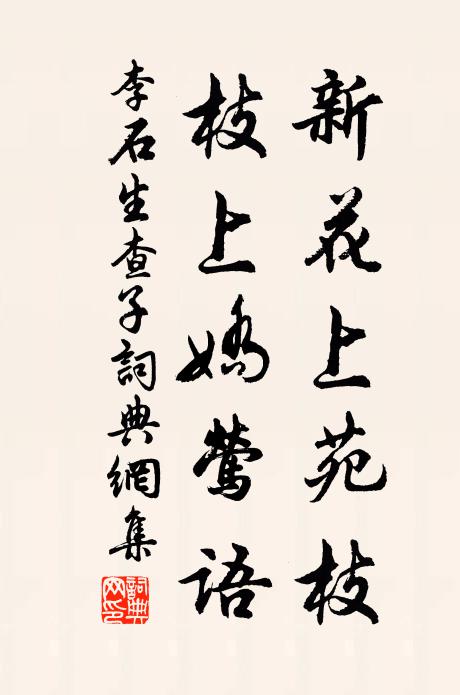 新花上苑枝
枝上嬌鶯語
李石生查子詞典網集
詞典網印